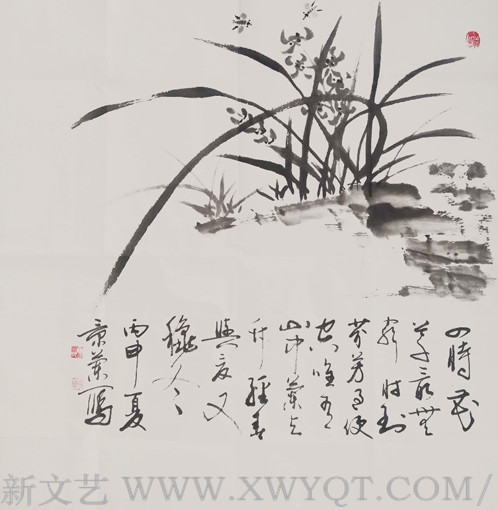 四時花
草最無
窮時到
芬芳過便
空唯有
山中蘭与
竹經春
歷夏又
穐冬
丙申夏
景蘭寫
新文艺 WWW.XWYQT.COM/